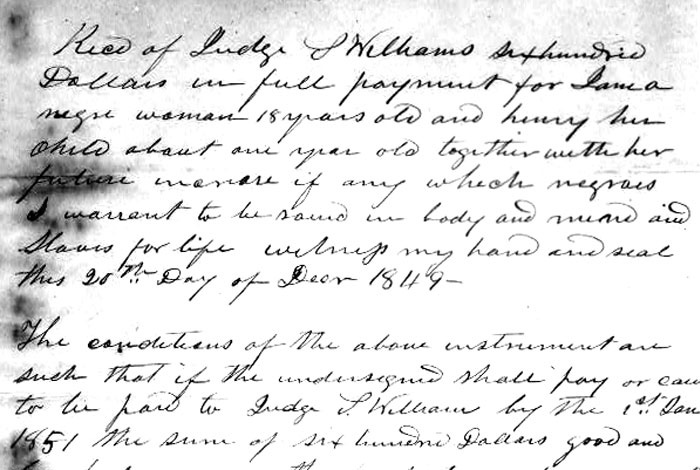 Recd of Judge S Williams six hundred
Dollars in full payment for Jane a
negro woman 18 years old and henry her
Child about one year old together with her
future increase if any which negroes
I warrant to be sound in body and mind and
Slaves for life witness my hand and seal
this 20th Day of Decr 1849 –
The conditions of the above instrument are
such that if the undersigned shall pay or cau
to be paid to Judge S William by the 1st Jan
1851 the sum of six hundred Dollars good and